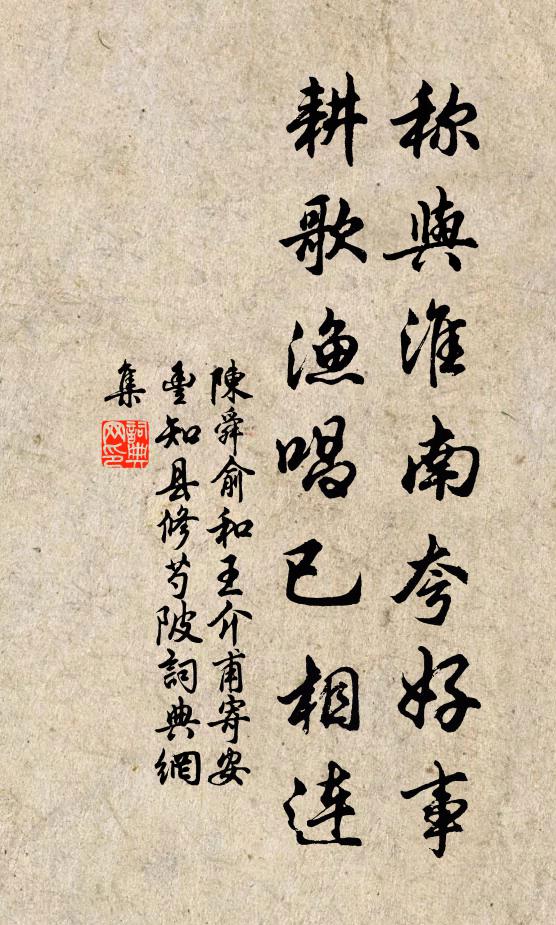 称與淮南夸好事
耕歌漁唱已相連
陳舜俞和王介甫寄安
豊知县修芍陂詞典網
集
詞典
网印